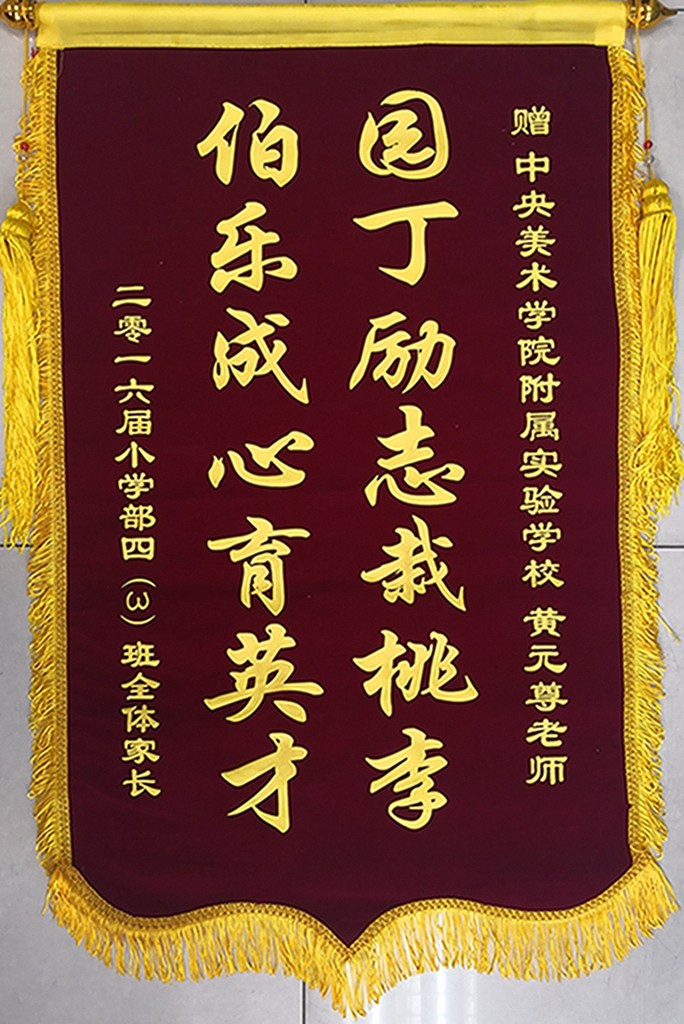 赠 中央美术学院附属实验学校 黄元尊老师
园丁励志栽桃李
伯乐成心育英才
二零一六届小学部四（3）班全体家长